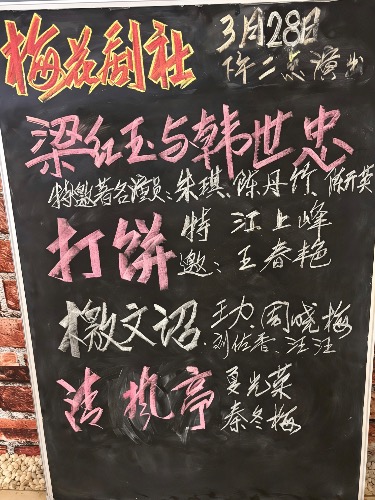 梅花剧社
3月28日
下午二点演出
梁红玉与韩世忠
特邀著名演员:朱琪、陈丹竹、陈开英
打饼
特邀:江上峰
王春艳
檄文诏
王力、周晓梅
刘佐香、汪汪
清风亭
夏光荣
秦冬梅